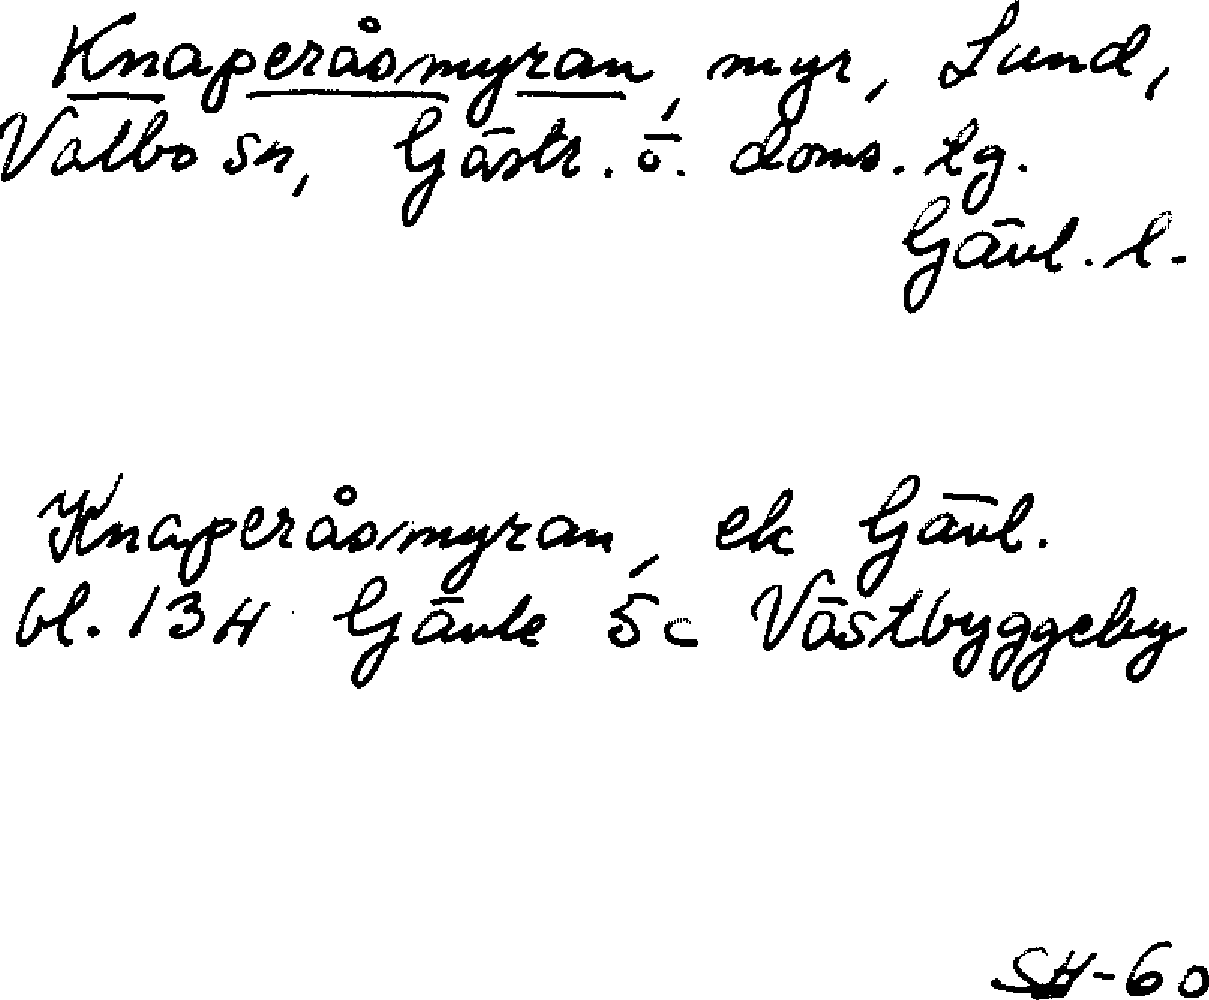 Knaperåsmyran, myr, Lund,
Valbo sn, Gästr. ö. doms. lg.
Gävl. l.
Knaperåsmyran, ek Gävl.
bl. 134 Gävle 5c Västbyggeby
SH-60